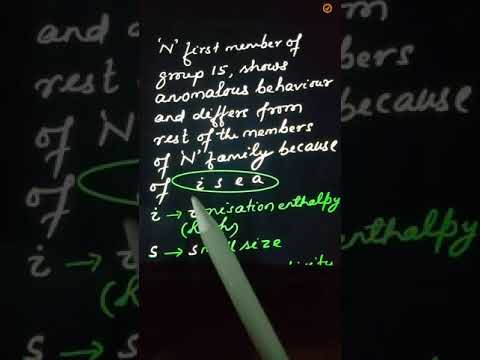 'N' first member of
group 15, shows
anomalous behaviour
and differs from
rest of the members
of 'N' family because
of i s e a
i → ionisation enthalpy
(high)
s → small size